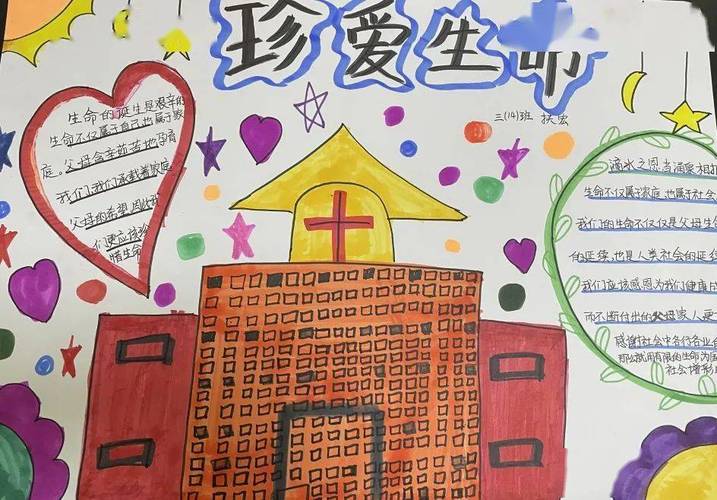 珍爱生命
三(14)班 扶宏
生命的诞生是艰辛的
生命不仅属于自己也属于家
庭。父母会辛苦苦地孕育
我们了我们承载着家庭
父母的希望,因此我
们更应该珍
惜生命
滴水之恩当涌泉相报
生命不仅属家庭,也属于社会
我们的生命不仅仅是父母生命
的延续,也是人类社会的延续
我们应该感恩为我们健康成
而不断付出的父母家人更
感谢社会中各行各业
那么就用有限的生命为
社会增彩